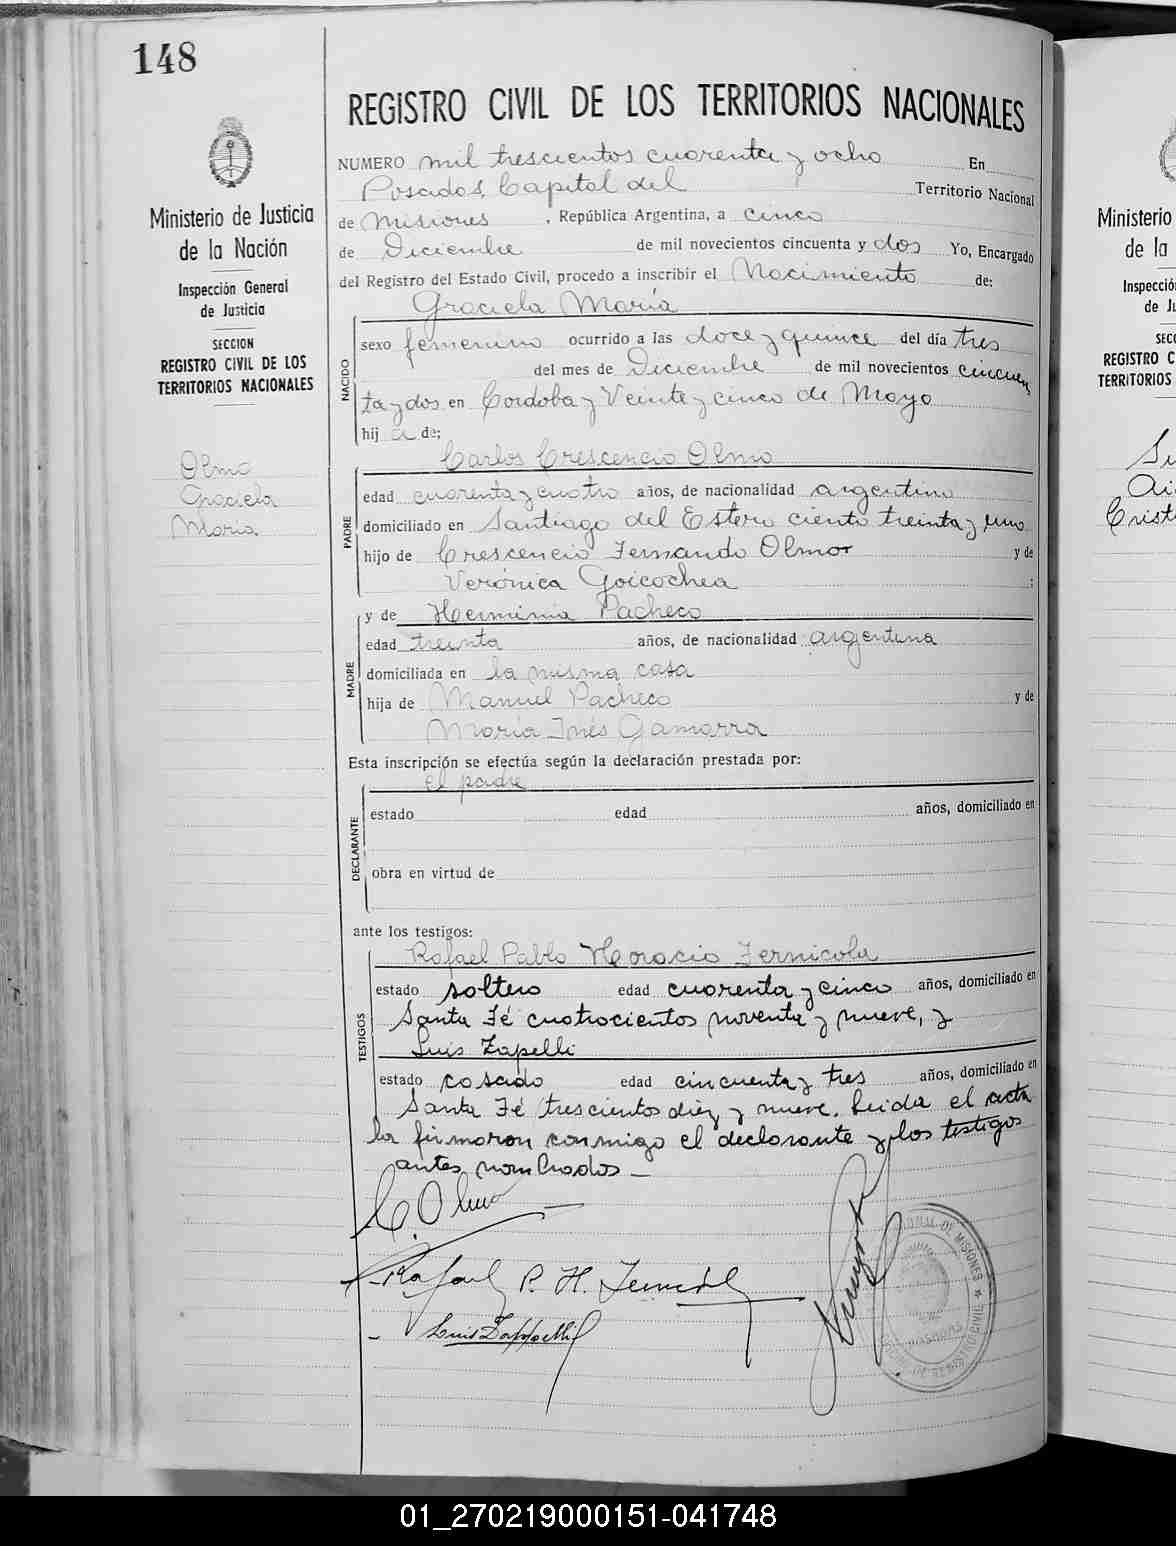 148
REGISTRO CIVIL DE LOS TERRITORIOS NACIONALES
Ministerio de Justicia
de la Nación
Inspección General
de Justicia
SECCION
REGISTRO CIVIL DE LOS
TERRITORIOS NACIONALES
Olmo
Graciela
María.
NUMERO mil trescientos cuarenta y ocho En
Posadas, Capital del Territorio Nacional
de Misiones, República Argentina, a cinco
de Diciembre de mil novecientos cincuenta y dos Yo, Encargado
del Registro del Estado Civil, procedo a inscribir el Nacimiento de:
Graciela María
NACIDO
sexo femenino ocurrido a las doce y quince del día tres
del mes de Diciembre de mil novecientos cincuen
ta y dos en Córdoba y Veinte y cinco de Mayo
hij a de;
Carlos Crescencio Olmo
PADRE
edad cuarenta y cuatro años, de nacionalidad argentino
domiciliado en Santiago del Estero ciento treinta y uno
hijo de Crescencio Fernando Olmo y de
Verónica Goicochea ;
y de Herminia Pacheco
MADRE
edad treinta años, de nacionalidad argentina
domiciliada en la misma casa
hija de Manuel Pacheco y de
María Inés Gamarra
Esta inscripción se efectúa según la declaración prestada por:
el padre
DECLARANTE
estado edad años, domiciliado en
obra en virtud de
ante los testigos:
Rafael Pablo Horacio Fernicola
TESTIGOS
estado soltero edad cuarenta y cinco años, domiciliado en
Santa Fé cuatrocientos noventa y nueve, y
Luis Zapelli
estado casado edad cincuenta y tres años, domiciliado en
Santa Fé trescientos diez y nueve. Leida el acta
la firmaron conmigo el declarante y los testigos
antes nombrados_
C. Olmo
Rafael P. H. Fernicola
Luis Zappelli
DE MISIONES
POSADAS
DE REGISTRO CIVIL
Ministerio
de la
Inspecció
de Ju
SECC
REGISTRO C
TERRITORIOS
01_270219000151-041748